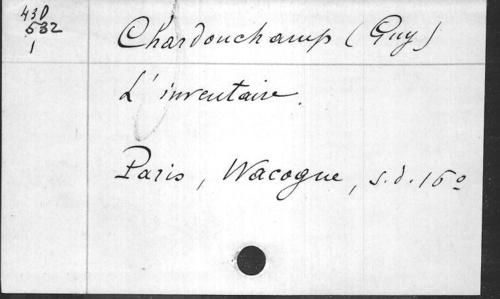 43D
532
1
Chardouchamp (Guy)
L'inventaire.
Paris, Wacogne, s.d. 16º